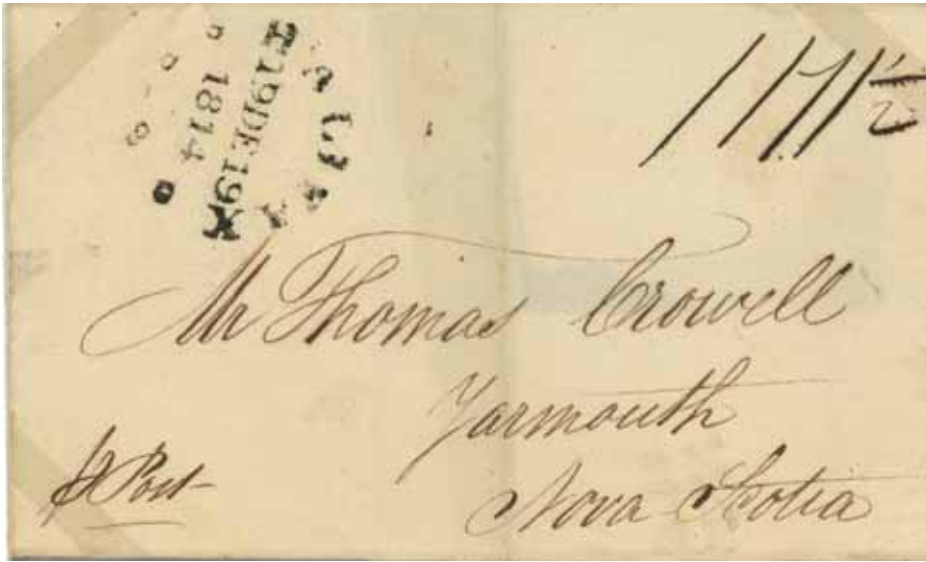 HALIFAX
19DE19
1814
Mr Thomas Crowell
Yarmouth
Nova Scotia
Post